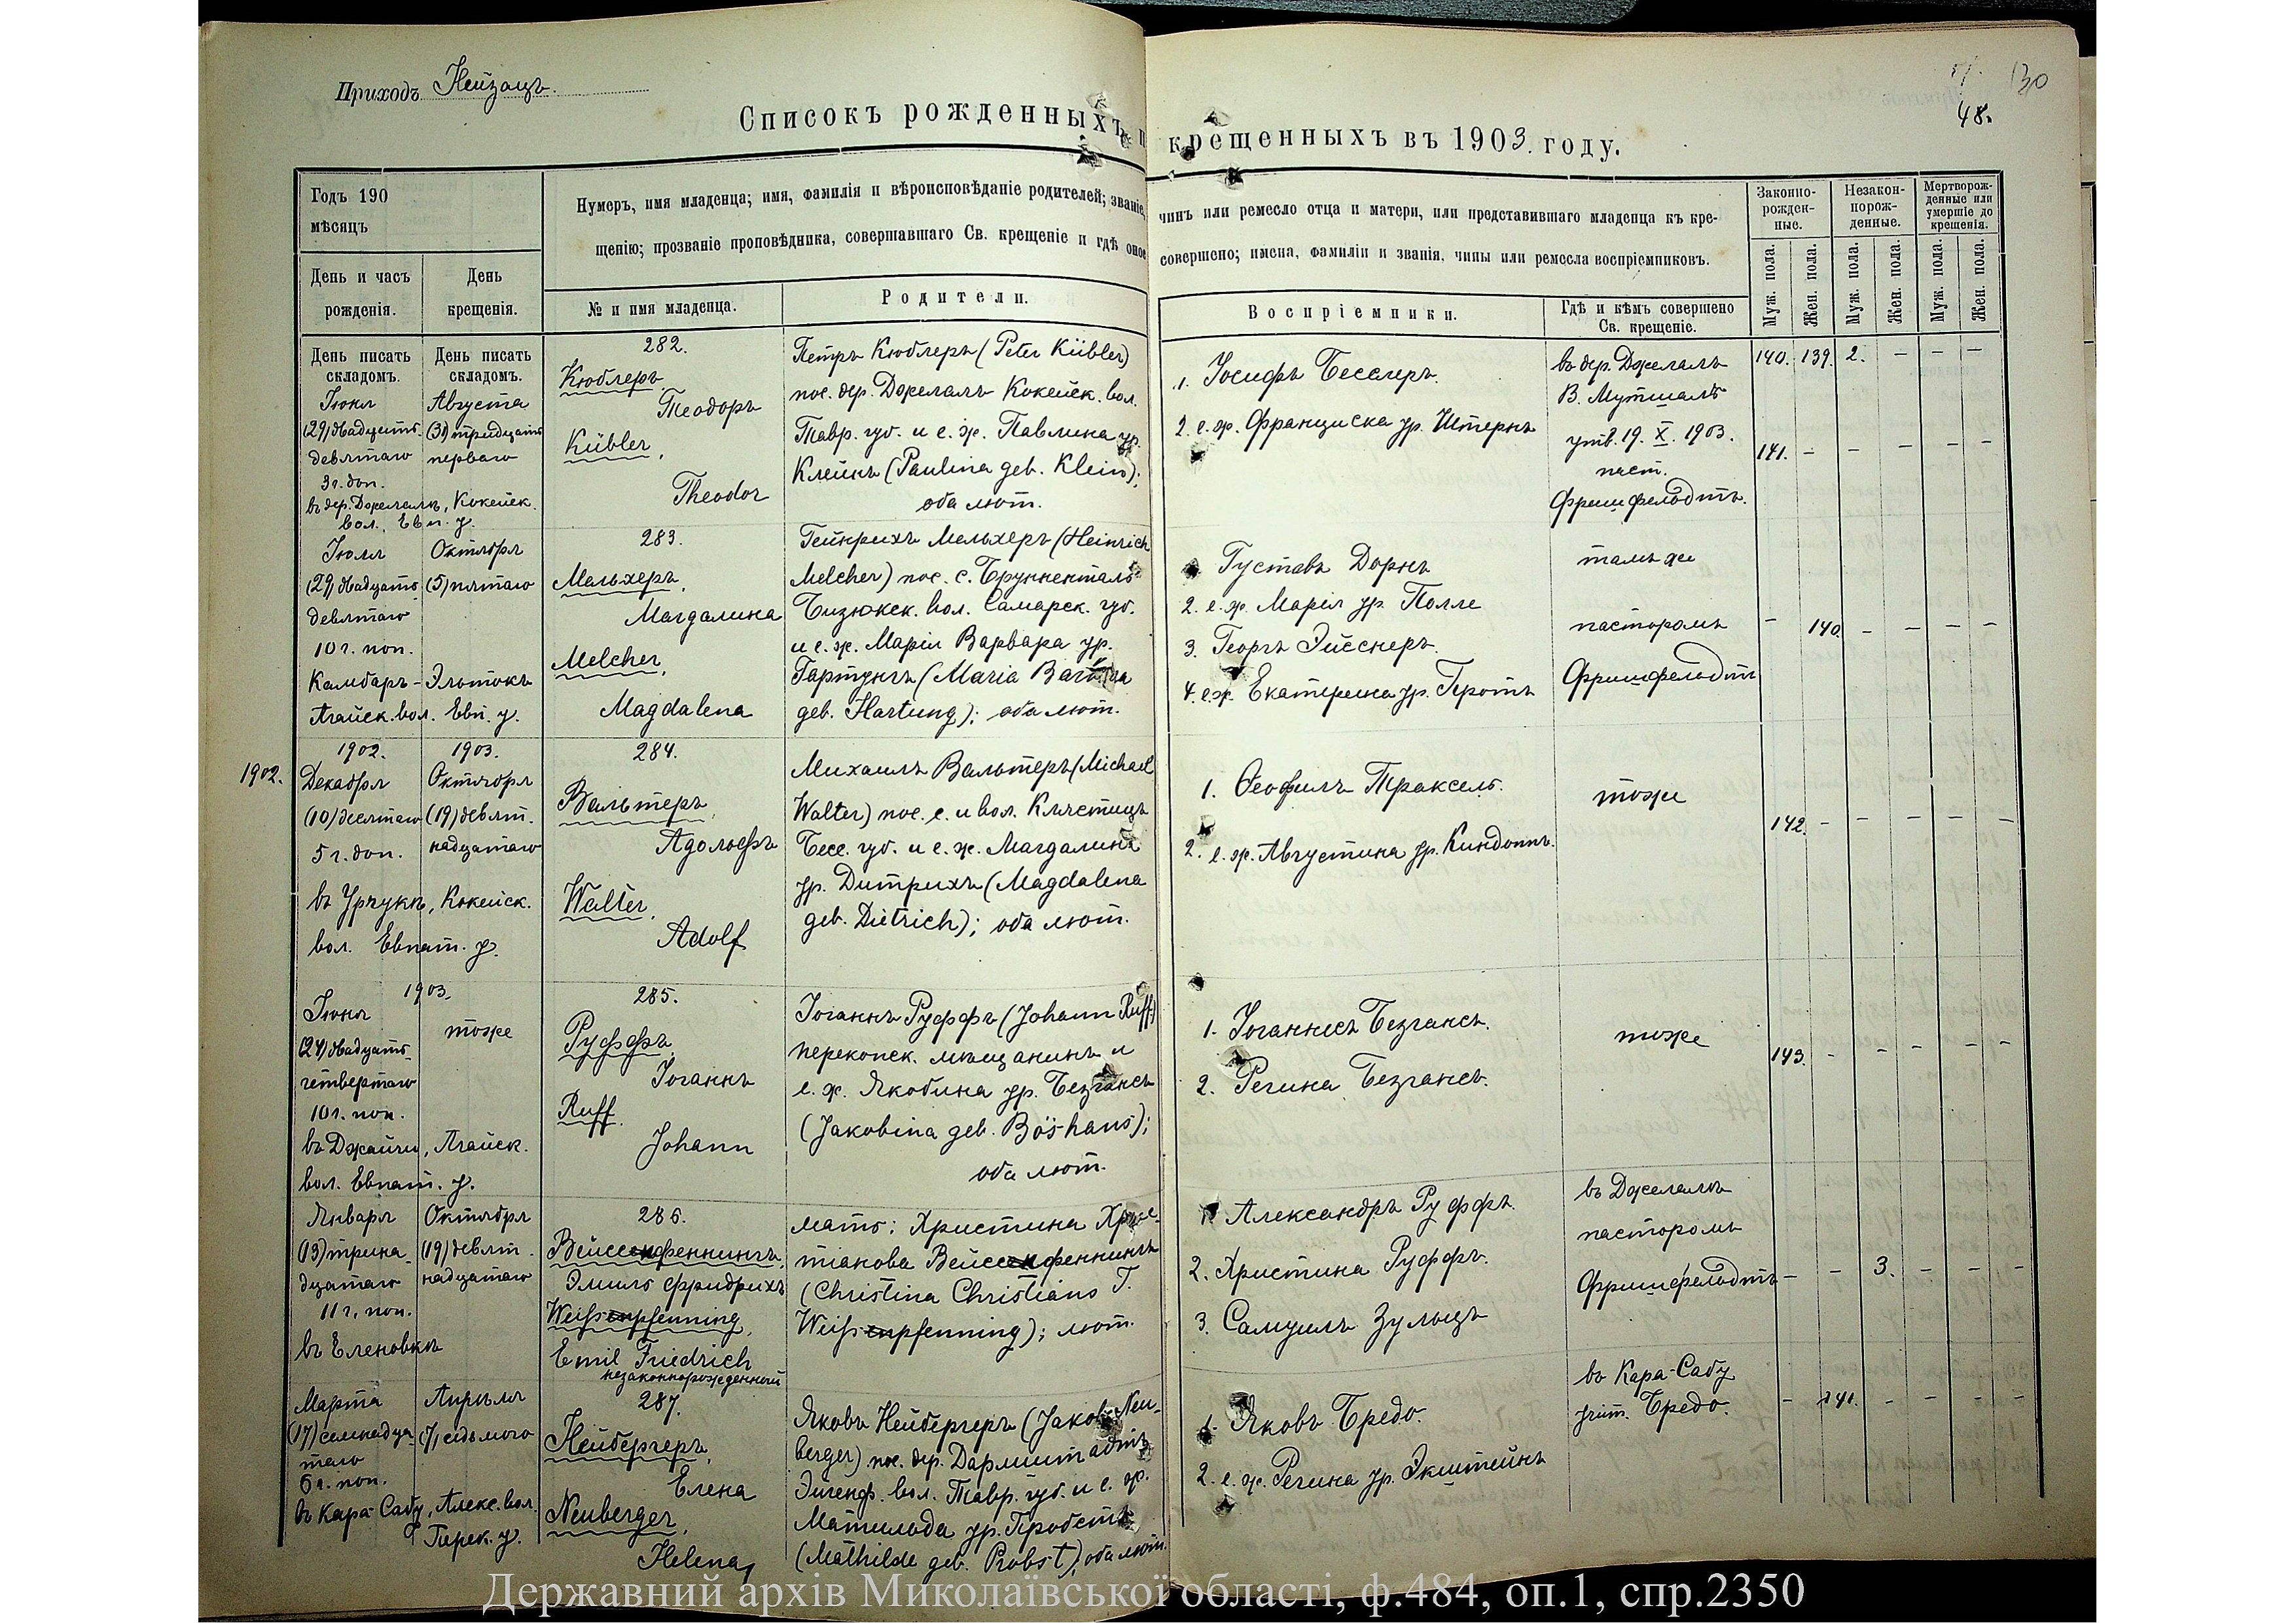 Приходъ Нейзацъ.
130
48.
Списокъ рожденныхъ и крещенныхъ въ 1903. году.
Годъ 190
мѣсяцъ
День и часъ
рожденія.
День
крещенія.
Нумеръ, имя младенца; имя, фамилія и вѣроисповѣданіе родителей; званіе, чинъ или ремесло отца и матери, или представившаго младенца къ кре-
щенію; прозваніе проповѣдника, совершавшаго Св. крещеніе и гдѣ оное совершено; имена, фамиліи и званія, чины или ремесла воспріемниковъ.
№ и имя младенца.
Родители.
Воспріемники.
Гдѣ и кѣмъ совершено
Св. крещеніе.
Законно-
рожден-
ные.
Незакон-
норож-
денные.
Мертворож-
денные или
умершіе до
крещенія.
Муж. пола.
Жен. пола.
Муж. пола.
Жен. пола.
Муж. пола.
Жен. пола.
День писать
складомъ.
День писать
складомъ.
Іюня
(29) двадцать
девятаго
3 г. доп.
въ дер. Джелалъ, Кокейек.
вол., Евп. у.
Августа
(31) тридцать
перваго
282.
Кюблеръ,
Теодоръ
Kübler,
Theodor
Петръ Кюблеръ (Peter Kübler)
пос. дер. Джелалъ Кокейек. вол.
Тавр. губ. и е. ж. Павлина ур.
Клейнъ (Paulina geb. Klein);
оба лют.
1. Іосифъ Бесслеръ.
2. е. ж. Франциска ур. Штернъ
въ дер. Джелалъ
В. Мутшалъ
утв. 19. X. 1903.
паст.
Фришфельдтъ.
140. 139. 2. — — —
141. — — — — —
Іюля
(29) двадцать
девятаго
10 г. поп.
Камбаръ-Эльтокъ
Агайск. вол. Евп. у.
Октября
(5) пятаго
283.
Мельхеръ,
Магдалина
Melcher,
Magdalena
Гейнрихъ Мельхеръ (Heinrich
Melcher) пос. с. Брунненталь
Бизюкск. вол. Самарск. губ.
и е. ж. Марія Варвара ур.
Гартунгъ (Maria Barbara
geb. Hartung); оба лют.
1. Густавъ Дорнъ
2. е. ж. Марія ур. Полле
3. Георгъ Эйсснеръ.
4. е. ж. Екатерина ур. Гротъ
тамъ же
пасторомъ
Фришфельдтъ
— 140. — — — —
1902.
1902.
Декабря
(10) десятаго
5 г. доп.
въ Урчукъ, Кокейск.
вол. Евпат. у.
1903.
Октября
(19) девят.
надцатаго
284.
Вальтеръ,
Адольфъ
Walter,
Adolf
Михаилъ Вальтеръ (Michael
Walter) пос. с. и вол. Клястицъ
Бесс. губ. и е. ж. Магдалина
ур. Дитрихъ (Magdalena
geb. Dietrich); оба лют.
1. Ѳеофилъ Траксель.
2. е. ж. Августина ур. Киндоппъ.
тоже
142. — — — — —
1903.
Іюня
(24) двадцать
четвертаго
10 г. поп.
въ Джайчи, Агайск.
вол. Евпат. у.
тоже
285.
Руффъ,
Іоганнъ
Ruff.
Johann
Іоганнъ Руффъ (Johann Ruff)
перекопск. мѣщанинъ и
е. ж. Якобина ур. Безгансъ
(Jakobina geb. Böshans);
оба лют.
1. Іоганнесъ Безгансъ.
2. Регина Безгансъ.
тоже
143. — — — — —
Января
(13) трина-
дцатаго
11 г. поп.
въ Еленовкѣ
Октября
(19) девят.
надцатаго
286.
Вейсспфеннингъ,
Эмиль Фридрихъ
Weisspfenning,
Emil Friedrich
незаконнорожденный
мать: Христина Хрис-
тіанова Вейсспфеннингъ
(Christina Christians T.
Weisspfenning); лют.
1. Александръ Руффъ.
2. Христина Руффъ.
3. Самуилъ Зульцъ
въ Джелалъ
пасторомъ
Фришфельдтъ
— — 3. — — —
Марта
(17) семнадца-
таго
6 г. поп.
въ Кара-Сабу, Алекс. вол.
Перек. у.
Апрѣля
(7) седьмого
287.
Нейбергеръ,
Елена
Neuberger,
Helena,
Яковъ Нейбергеръ (Jakob Neu-
berger) пос. дер. Дармштадтъ
Эйгенф. вол. Тавр. губ. и е. ж.
Матильда ур. Пробстъ
(Mathilde geb. Probst), оба лют.
1. Яковъ Бредо.
2. е. ж. Регина ур. Экштейнъ
въ Кара-Сабу
учит. Бредо.
— 141. — — — —
Державний архів Миколаївської області, ф.484, оп.1, спр.2350